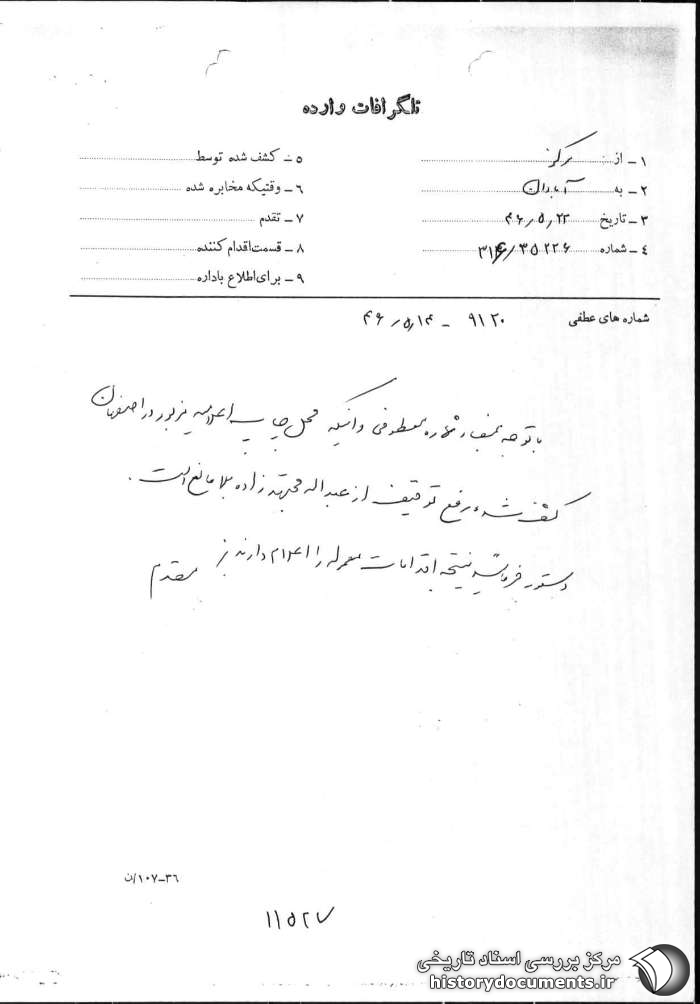 تلگرافات وارده
۱ـ از: مرکز
۲ـ به آبادان
۳ـ تاریخ ۴۶/۵/۲۲
۴ـ شماره ۳۱۶/۳۵۲۲۶
۵ـ کشف شده توسط
۶ـ وقتیکه مخابره شده
۷ـ تقدم
۸ـ قسمت اقدام کننده
۹ـ برای اطلاع باداره
شماره های عطفی ۹۱۲۰ ـ ۴۶/۵/۱۴
با توجه بمفاد شماره معطوفی و اینکه محل چاپ اعلامیه مزبور در اصفهان
کشف شده رفع توقیف از عبداله مجتهدزاده بلامانع است.
دستور فرمائید نتیجه اقدامات معموله را اعلام دارند مقدم
۳۶ـ۱۰۷/ن
۱۱۵۲۷
مرکز بررسی اسناد تاریخی
historydocuments.ir